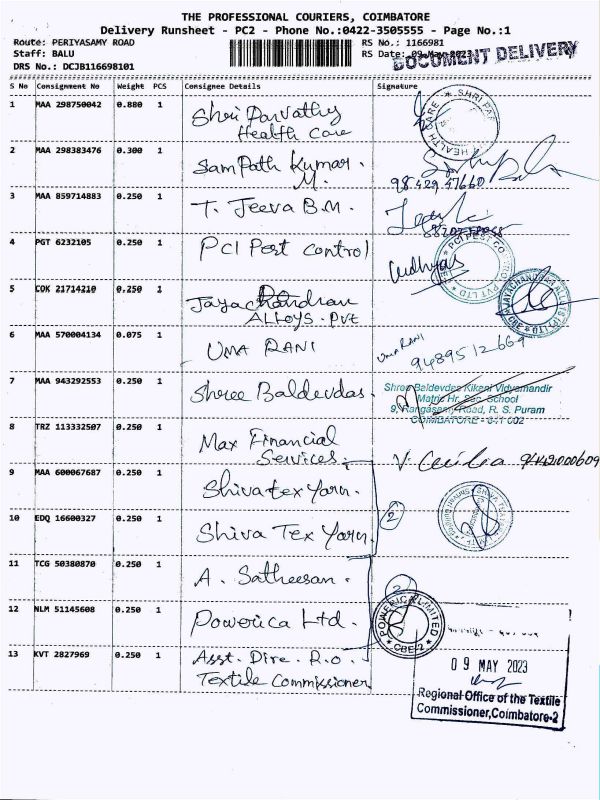 THE PROFESSIONAL COURIERS, COIMBATORE
Delivery Runsheet - PC2 - Phone No.:0422-3505555 - Page No.:1
Route: PERIYASAMY ROAD RS No.: 1166981
Staff: BALU RS Date: 09-May-2023
DOCUMENT DELIVERY
DRS No.: DCJB116698101
S No Consignment No Weight PCS Consignee Details Signature
1 MAA 298750042 0.880 1 Shri Parvathy
Health Care
HEALTH CARE * SHRI PAR
2 MAA 298383476 0.300 1 Sampath Kumar.
M.
98429 47660
3 MAA 859714883 0.250 1 T. Jeeva B.M.
4 PGT 6232105 0.250 1 PCI Pest Control
PCI PEST CO
PVT LTD
5 COK 21714210 0.250 1 Jayachandran
Alloys. Pvt
JAYACHANDRAN ALLOYS (P) LTD
CBE
6 MAA 570004134 0.075 1 UMA RANI UMA RANI
9489512664
7 MAA 943292553 0.250 1 Shree Baldevdas.
Shree Baldevdas Kikani Vidyamandir
Matric Hr. Sec. School
9, Rangasamy Road, R. S. Puram
COIMBATORE - 641 002
8 TRZ 113332507 0.250 1 Max Financial
Services. V. Cecilia 9442000609
9 MAA 600067687 0.250 1 Shivatex Yarn.
2
10 EDQ 16600327 0.250 1 Shiva Tex Yarn.
SHIVA TEX
11 TCG 50380870 0.250 1 A. Satheesan.
12 NLM 51145608 0.250 1 Powerica Ltd.
POWERICA LIMITED
CBE-2
13 KVT 2827969 0.250 1 Asst. Dire. R.O.
Textile Commissioner
09 MAY 2023
Regional Office of the Textile
Commissioner,Coimbatore-2